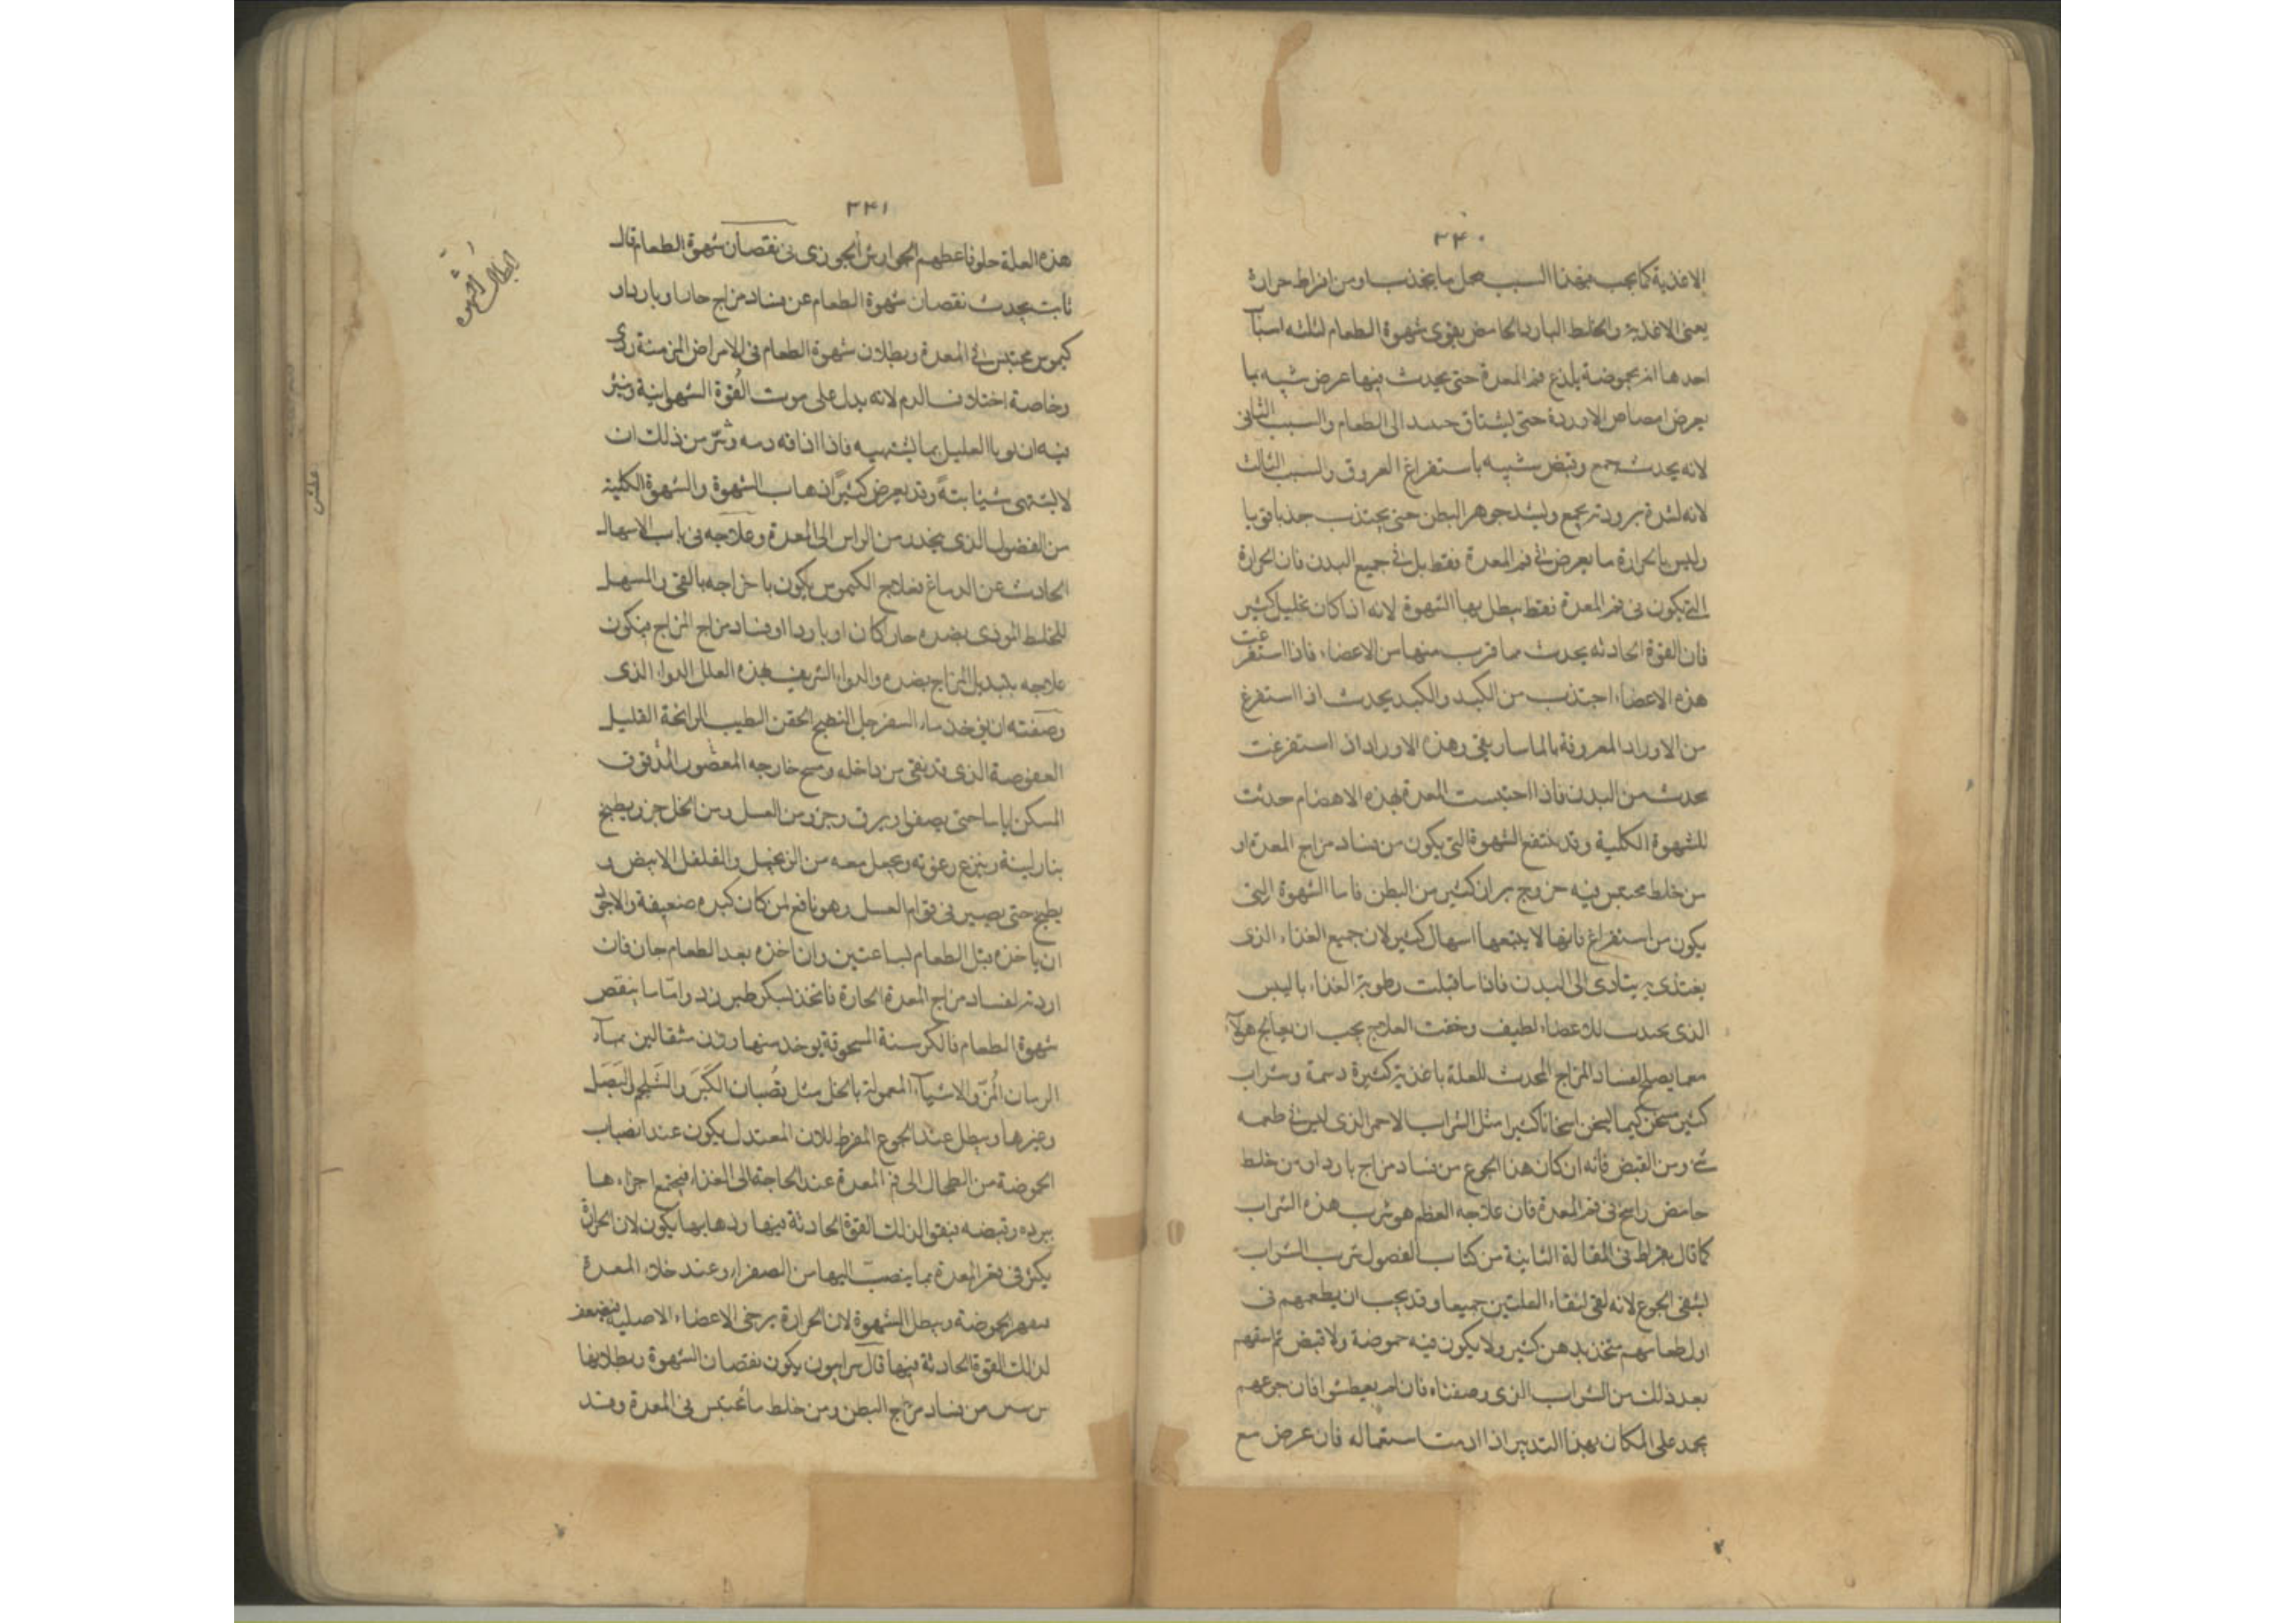 ٣٤٠
الاغذية كما يجب فبهذا السبب يحل ما يجذب او من افراط حرارة
يعنى الاغذية والخلط البارد الحامض يقوى شهوة الطعام لثلثه اسبآ
احدها انه بحموضة يلذع فم المعدة حتى يحدث فيها عرض شبيه بما
يعرض امصاص الاوردة حتى يشتاق حسد الى الطعام والسبب الثانى
لانه يحدث جمع وقبض شبيه باستفراغ العروق والسبب الثالث
لانه لشدة برودته يجمع ويشد جوهر البطن حتى يجتذب جذبا قويا
وليس بالحرارة ما يعرض فى فم المعدة فقط بل فى جميع البدن فان الحرارة
التى يكون فى فم المعدة فقط يبطل بها الشهوة لانه اذا كان تحليل كثير
فان القوة الحادثه يحدث مما قرب منها من الاعضاء فاذا استفرغت
هذه الاعضاء اجتذب من الكبد والكبد يحدث اذا استفرغ
من الاوراد المعروفة بالماساريقى وهذه الاوراد اذا استفرغت
يحدث من البدن فاذا احتبست المعدة بهذه الاهضام حدثت
للشهوة الكلية وقد ينتفع الشهوة التى يكون من فساد مزاج المعدة او
من خلط محتبس فيه خروج براز كثير من البطن فاما الشهوة التى
يكون من استفراغ فانها لا يتبعها اسهال كثير لان جميع الغذاء الذى
يغتذى به يتادى الى البدن فاذا ما قبلت رطوبة الغذاء باليبس
الذى يحدث للاعضاء لطيف وخفت العلاج يجب ان يعالج هولآ
معما يصلح لفساد المزاج المحدث للعلة باغذية كثيرة دسمة وشراب
كثير مسخن كيما يسخن اسخانا كثيرا مثل الشراب الاحمر الذى ليس فى طعمه
شئ ومن القبض فانه ان كان هذا الجوع من فساد مزاج بارد او من خلط
حامض راسخ فى فم المعدة فان علاجه العظم هو شرب هذه الشراب
كما قال بقراط فى المقالة الثانية من كتاب الفصول شرب الشراب
يشفى الجوع لانه يفى لشفاء العلتين جميعا وقد يجب ان يطعمهم فى
اول طعامهم متخذ بدهن كثير ولا يكون فيه حموضة ولا قبض ثم اسقهم
بعد ذلك من الشراب الذى وصفناه فان لم يعطشوا فان جوعهم
يحد على المكان بهذا التدبير اذا ادمت استعماله فان عرض مع
٣٤١
هذه العلة حلونا عطهم الجوارش الجوزى فى نقصان شهوة الطعام قال
ثابت يحدث نقصان شهوة الطعام عن فساد مزاج حار او بارد او
كيموس محتبس فى المعدة وبطلان شهوة الطعام فى الامراض المزمنة ردى
وخاصة اختلاف الدم لانه يدل على موت القوة الشهوانية وشر
فيه ان العليل بما يشتهيه فاذا ذاقه وشر من ذلك ان
لا يشتهى شيئا بتة وقد يعرض كثيرا ذهاب الشهوة والشهوة الكلية
من الفضول الذى ينحدر من الراس الى المعدة وعلاجه فى باب الاسهال
الحادث عن الدماغ فعلاج الكيموس يكون باخراجه بالقى والمسهل
للخلط الموذى بضده حار كان او باردا او فساد مزاج المزاج فيكون
علاجه بتبديل المزاج بضده والدواء الشريف بهذه العلل الدواء الذى
وصفته ان يوخذ ماء السفرجل النضيج الطيب الرائحة القليل
العفوصة الذى قد نقى من داخله ومسح خارجه المعصور المدقوق
المسكن اياما حتى يصفو او يرق وجزو من العسل ومن الخل جزو يطبخ
بنار لينة وينزع رغوته ويجعل معه من الزنجبيل والفلفل الابيض و
يطبخ حتى يصير فى قوام العسل وهو نافع لمن كان كبده ضعيفة والاجود
ان ياخذه قبل الطعام بساعتين وان اخذه بعد الطعام جاز فان
اردته لفساد مزاج المعدة الحارة فاتخذ بسكر طبرزد واما ما ينقص
شهوة الطعام فالكرسنة المسحوقة يوخذ منها وزن مثقالين بمآء
الرمان المز والاشيآء المعمولة بالخل مثل قضبان الكبر والشلجم والبصل
وغيرها ويبطل عند الجوع المفرط للان المعتدل يكون عند انصباب
الحموضة من الطحال الى فم المعدة عند الحاجة الى الغذاء فيجتمع اجزاءها
ببرده وقبضه فيقوا لذلك القوة الحادثة فيها وذهابها يكون لان الحرارة
يكثر فى قعر المعدة بما ينصب اليها من الصفراء وعند خلاء المعدة
الحموضة ويبطل الشهوة لان الحرارة يرخى الاعضاء الاصلية فيضعف
لذلك القوة الحادثة فيها قال سرابيون يكون نقصان الشهوة وبطلانها
من فساد مزاج البطن ومن خلط ما محتبس فى المعدة وقد